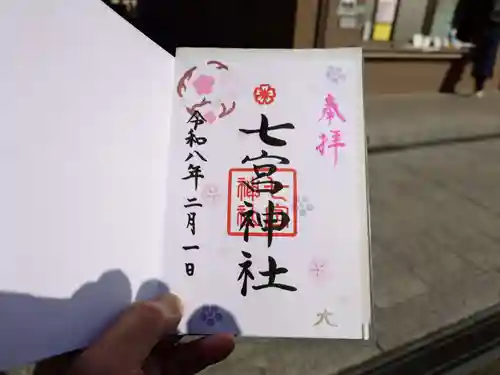 奉拝
七宮神社
七宮
神社
令和八年二月一日